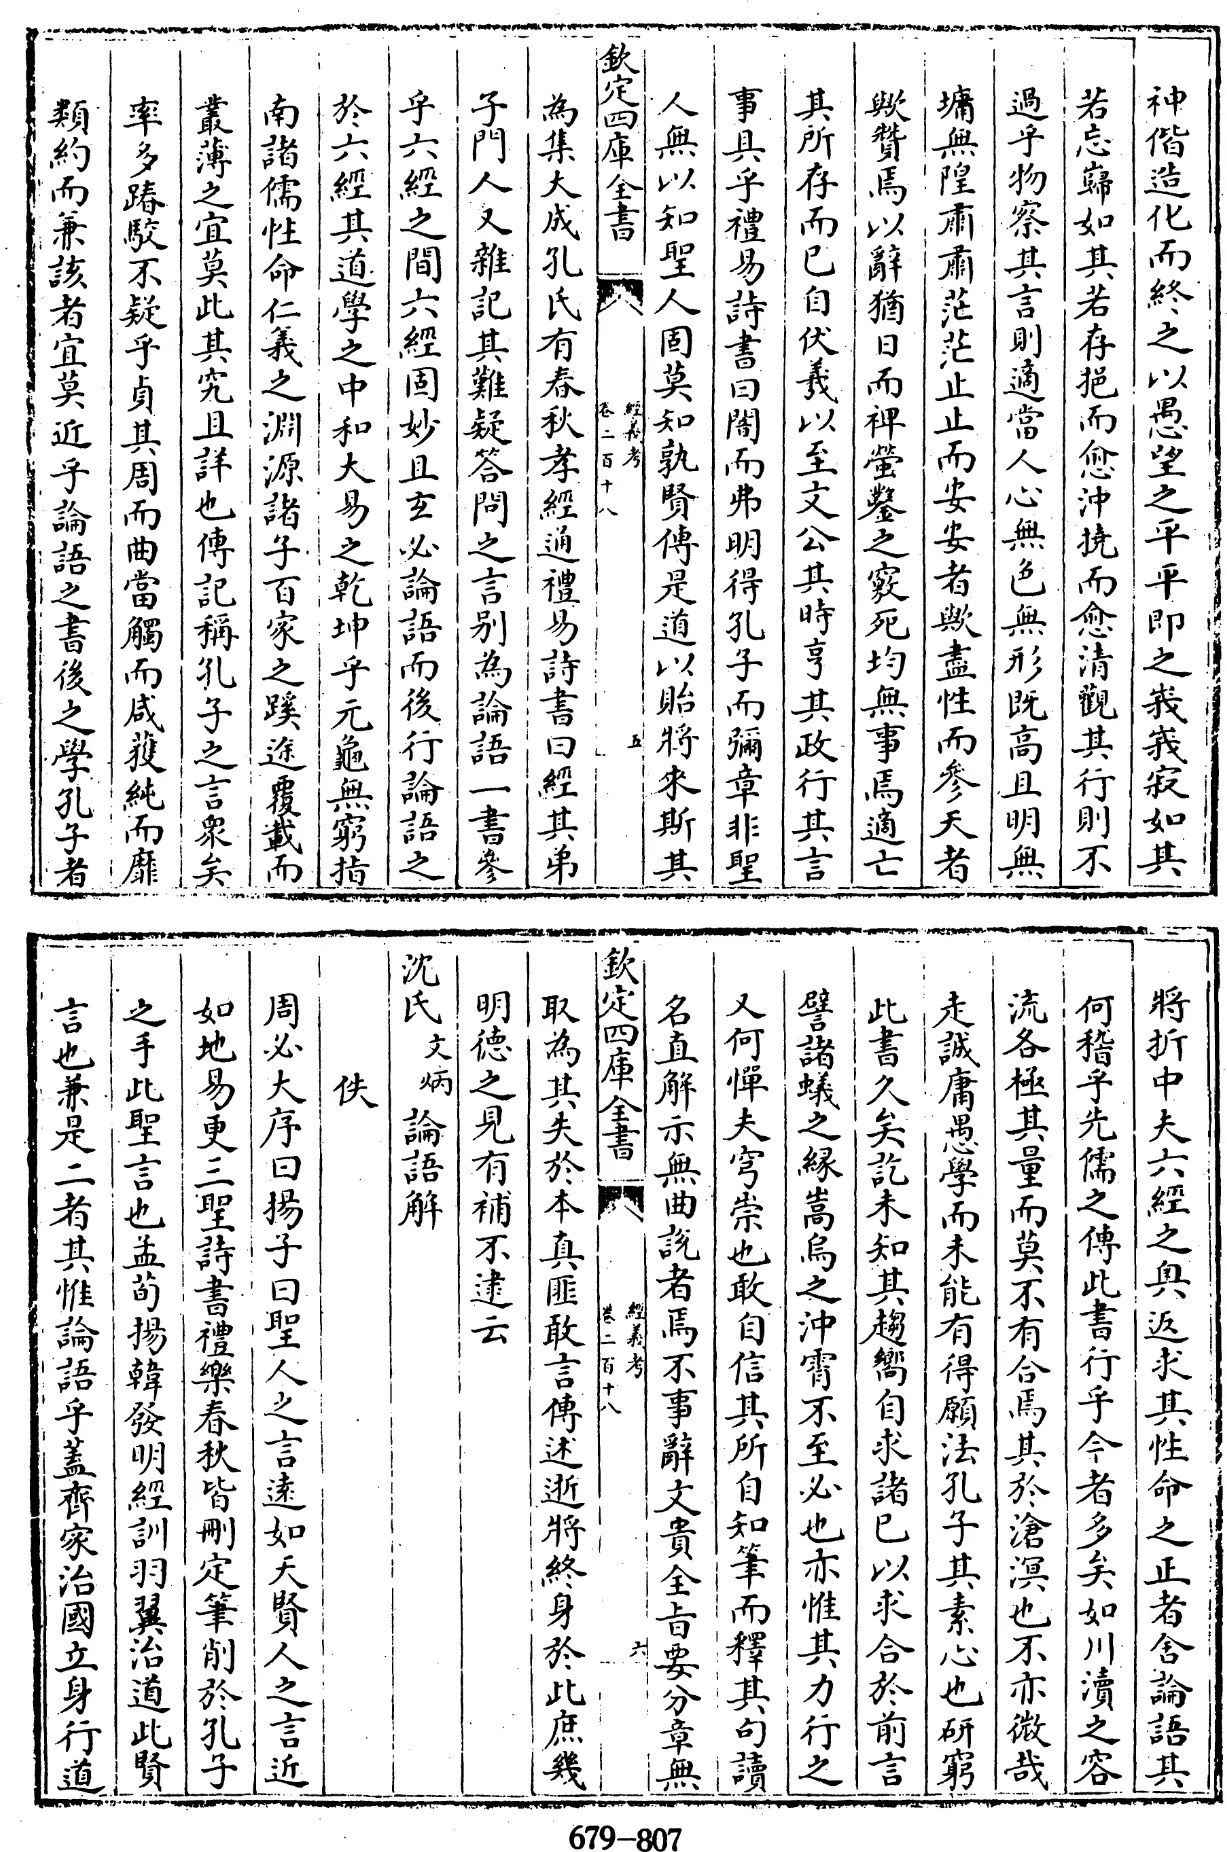 神偕造化而終之以愚望之平平即之峩峩寂如其
若忘歸如其若存挹而愈沖撓而愈清觀其行則不
過乎物察其言則適當人心無色無形既高且明無
墉無隍肅肅茫茫止止而安安者歟盡性而參天者
歟贊焉以辭猶日而裨螢鑿之竅死均無事焉適亡
其所存而已自伏羲以至文公其時亨其政行其言
事具乎禮易詩書曰闇而弗明得孔子而彌章非聖
人無以知聖人固莫知孰賢傳是道以貽將來斯其
欽定四庫全書
經義考
卷二百十八
五
為集大成孔氏有春秋孝經通禮易詩書曰經其弟
子門人又雜記其難疑答問之言别為論語一書參
乎六經之間六經固妙且玄必論語而後行論語之
於六經其道學之中和大易之乾坤乎元龜無窮指
南諸儒性命仁義之淵源諸子百家之蹊途覆載而
叢薄之宜莫此其究且詳也傳記稱孔子之言衆矣
率多踳駁不疑乎貞其周而曲當觸而咸獲純而靡
類約而兼該者宜莫近乎論語之書後之學孔子者
將折中夫六經之奥返求其性命之正者舍論語其
何稽乎先儒之傳此書行乎今者多矣如川瀆之容
流各極其量而莫不有合焉其於滄溟也不亦微哉
走誠庸愚學而未能有得願法孔子其素心也研窮
此書久矣訖未知其趨嚮自求諸已以求合於前言
譬諸蟻之縁嵩烏之沖霄不至必也亦惟其力行之
又何憚夫穹崇也敢自信其所自知筆而釋其句讀
名直解示無曲說者焉不事辭文貴全旨要分章無
欽定四庫全書
經義考
卷二百十八
六
取為其失於本真匪敢言傳述逝將終身於此庶幾
明德之見有補不逮云
沈氏文炳論語解
佚
周必大序曰揚子曰聖人之言遠如天賢人之言近
如地易更三聖詩書禮樂春秋皆刪定筆削於孔子
之手此聖言也孟荀揚韓發明經訓羽翼治道此賢
言也兼是二者其惟論語乎蓋齊家治國立身行道
679-807